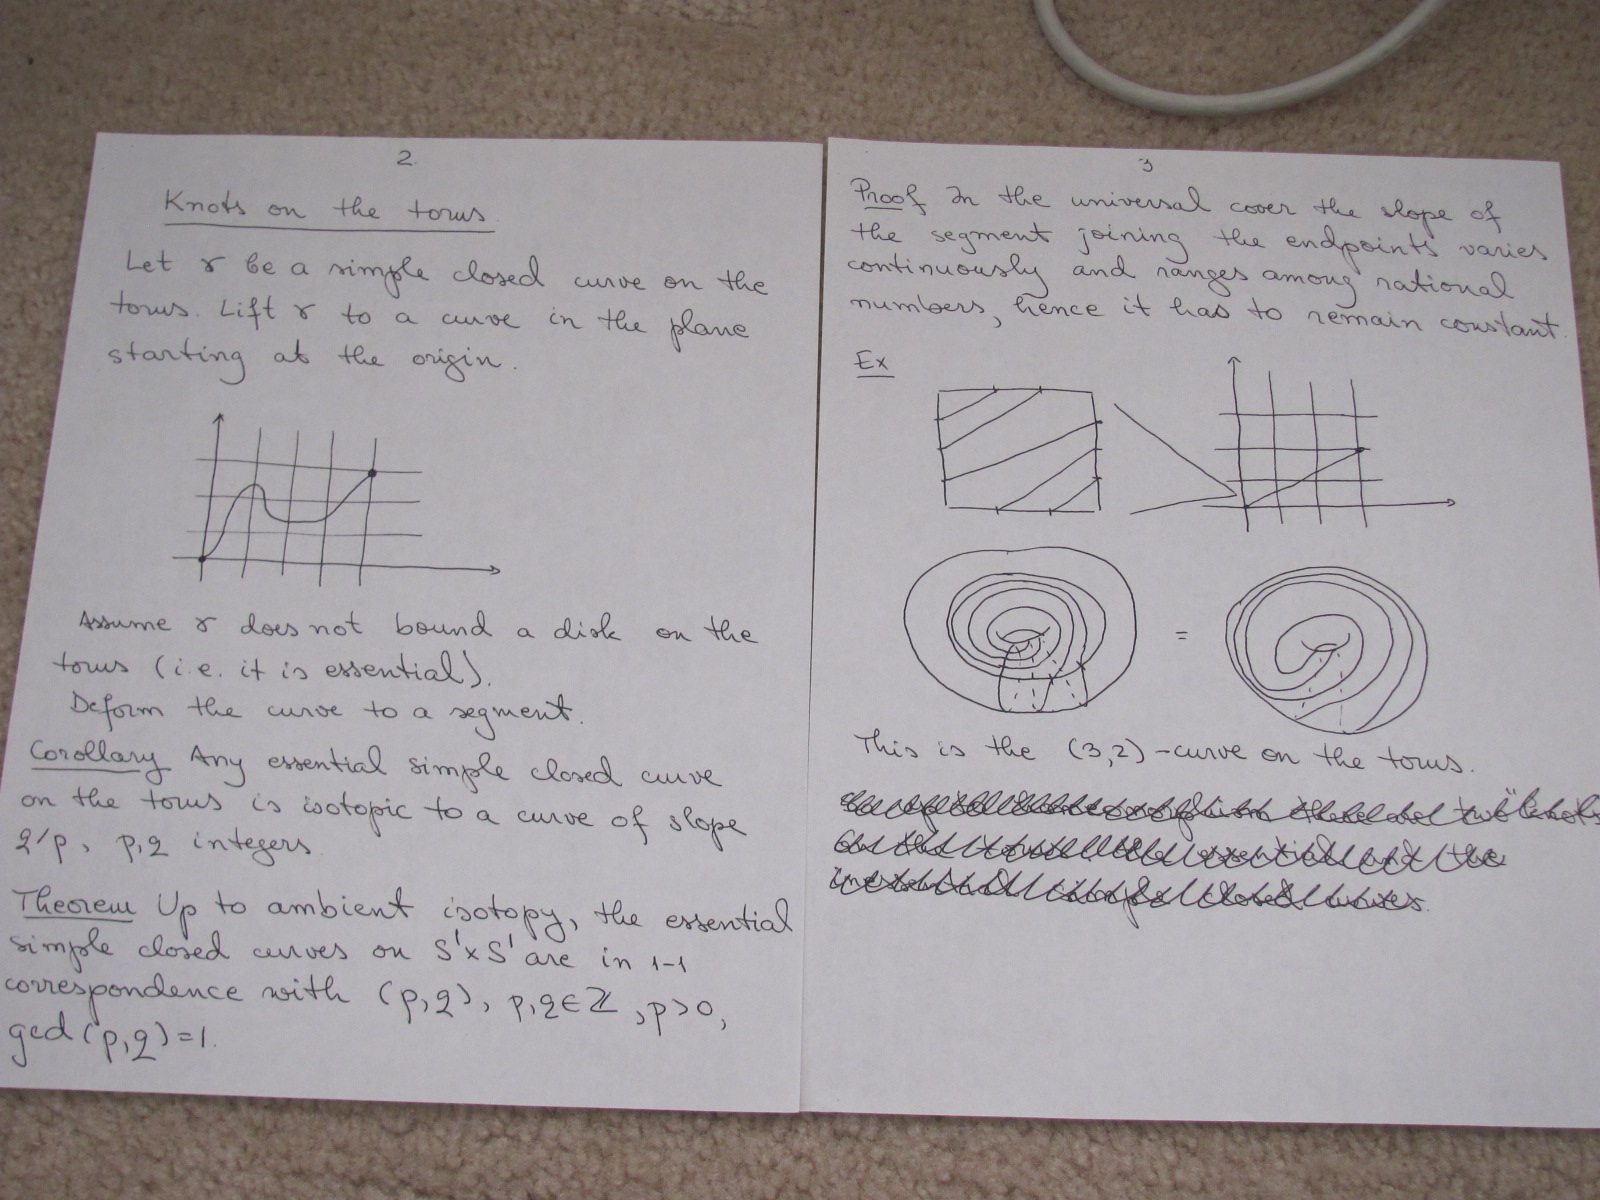 2
Knots on the torus.
Let γ be a simple closed curve on the
torus. Lift γ to a curve in the plane
starting at the origin.
Assume γ does not bound a disk on the
torus (i.e. it is essential).
Deform the curve to a segment.
Corollary Any essential simple closed curve
on the torus is isotopic to a curve of slope
q/p, p,q integers.
Theorem Up to ambient isotopy, the essential
simple closed curves on S¹×S¹ are in 1-1
correspondence with (p,q), p,q∈ℤ, p>0,
gcd(p,q)=1.
3
Proof In the universal cover the slope of
the segment joining the endpoints varies
continuously and ranges among rational
numbers, hence it has to remain constant.
Ex
=
This is the (3,2)-curve on the torus.